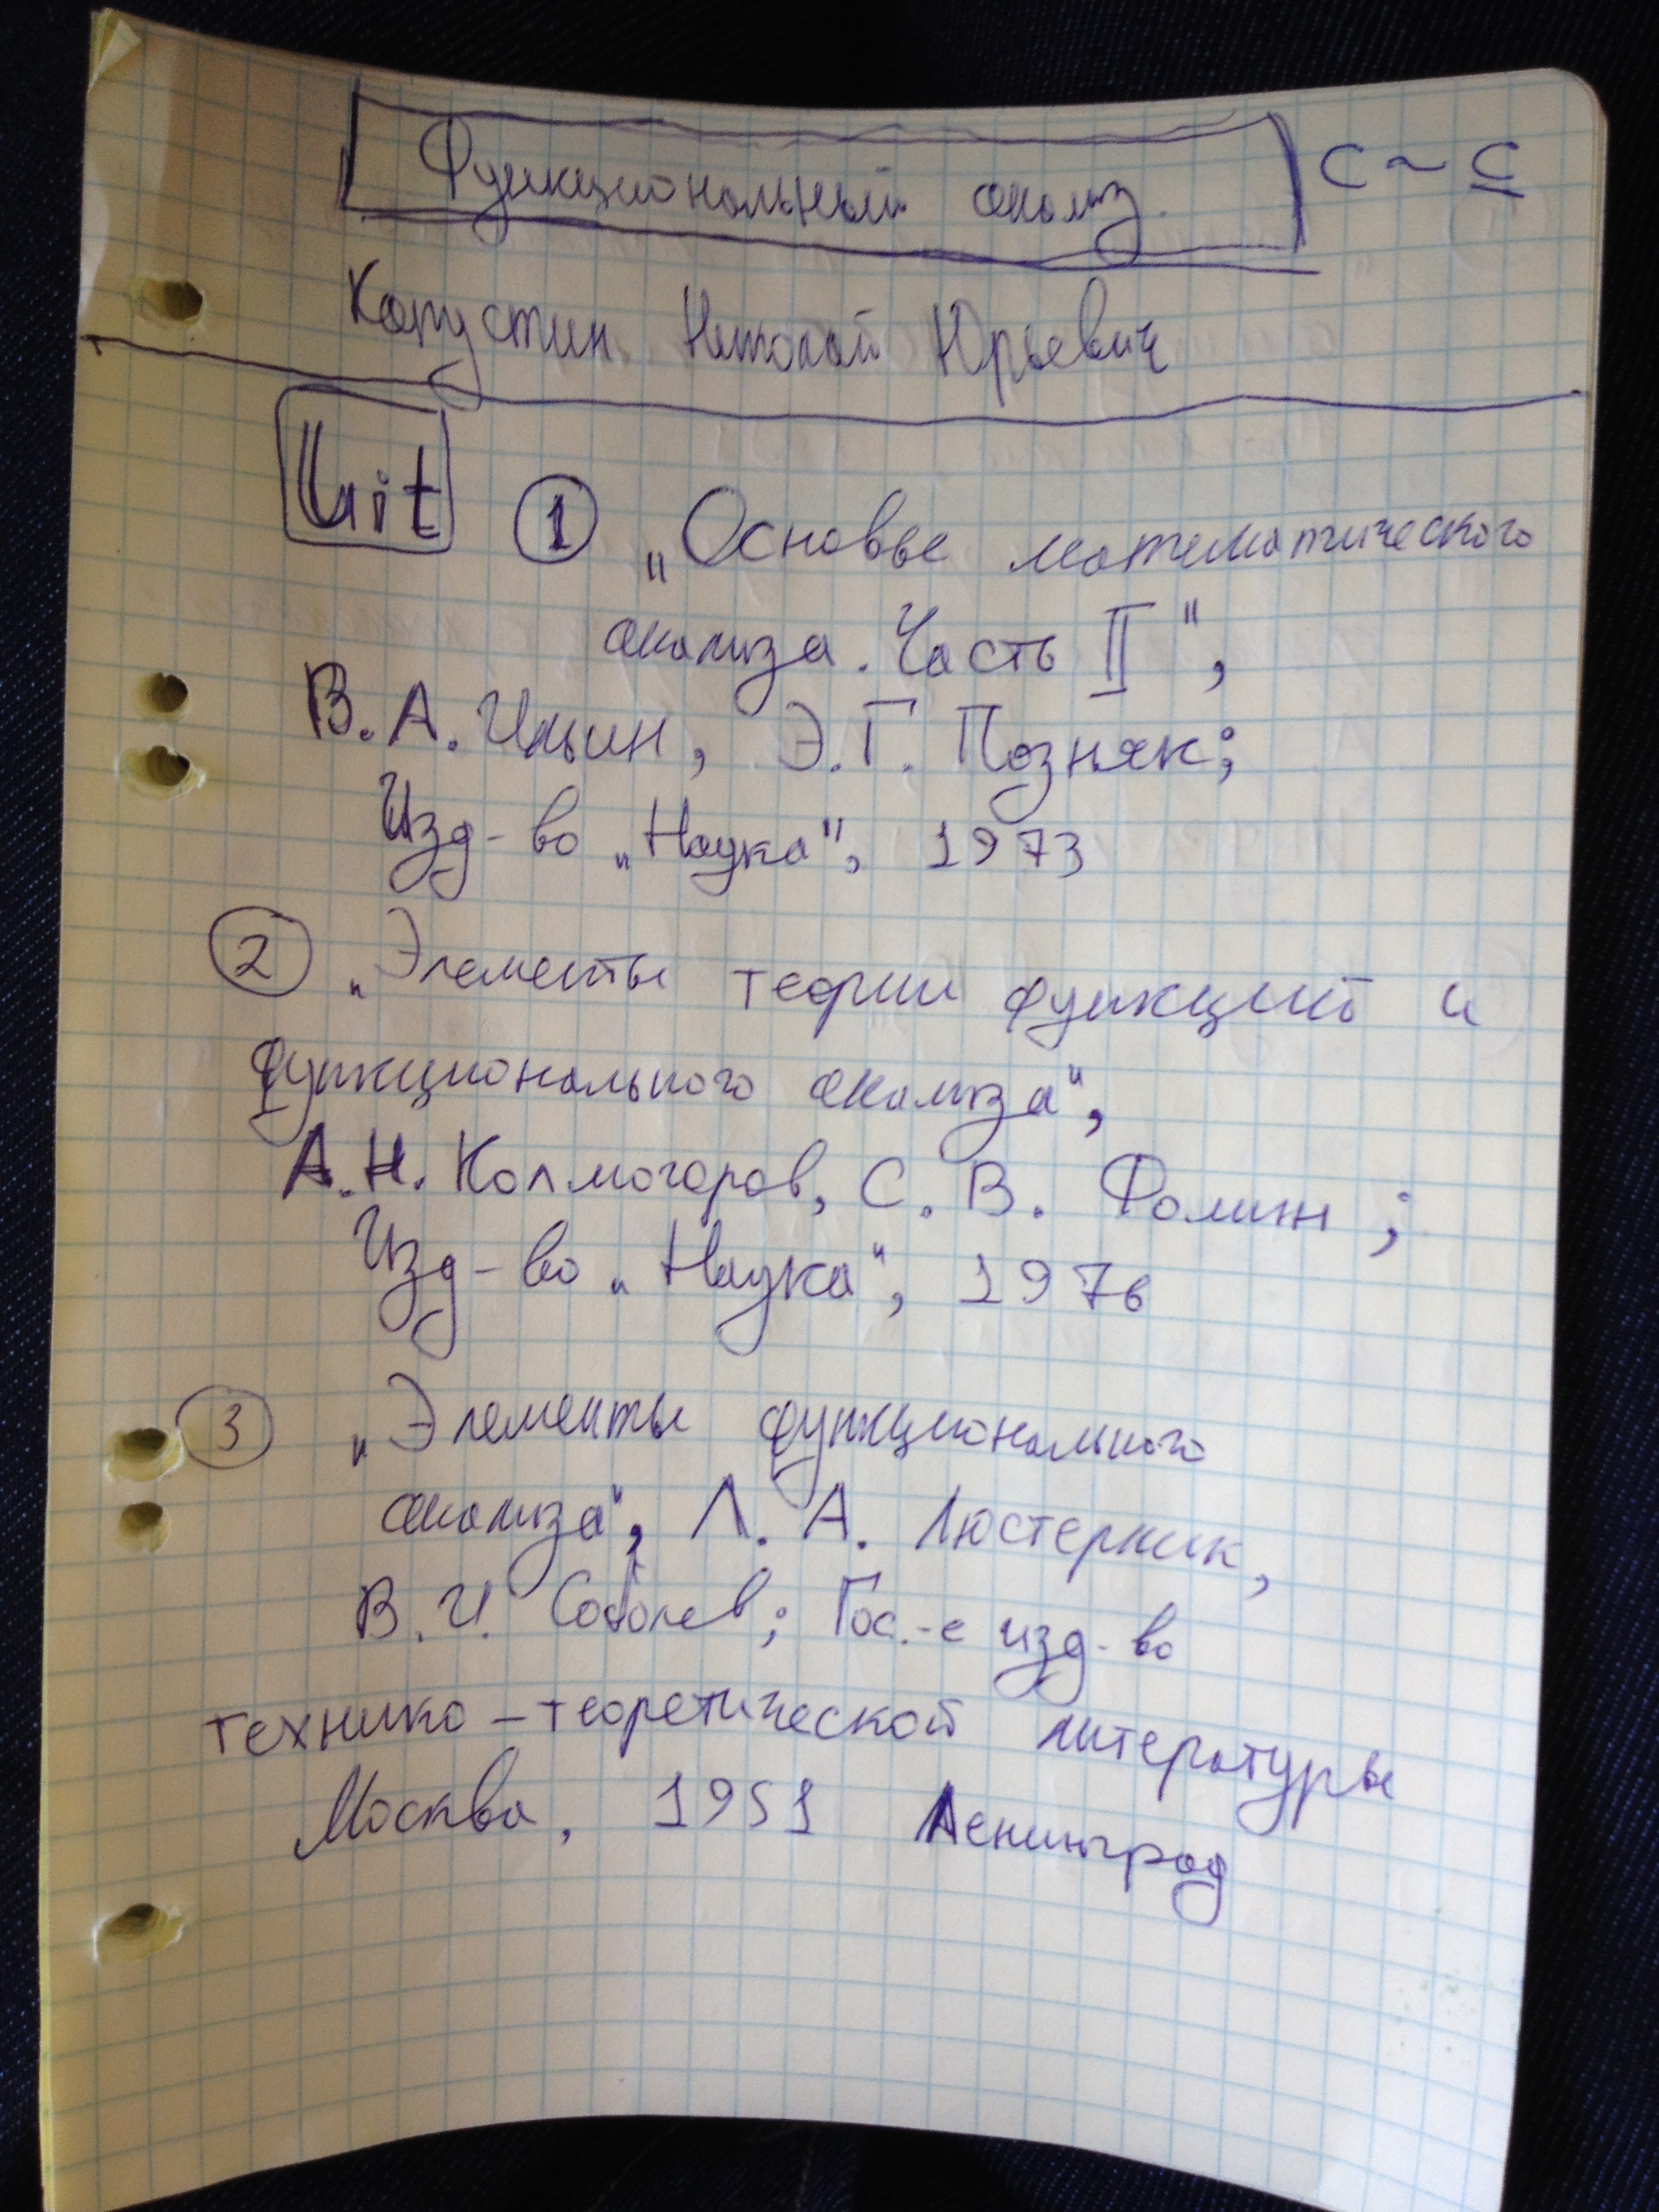 Функциональный анализ. C ~ C
Капустин Николай Юрьевич
Lit ① „Основы математического
анализа. Часть II",
В. А. Ильин, Э. Г. Позняк;
Изд-во „Наука", 1973
② „Элементы теории функций и
функционального анализа",
А. Н. Колмогоров, С. В. Фомин;
Изд-во „Наука", 1976
③ „Элементы функционального
анализа", Л. А. Люстерник,
В. И. Соболев; Гос.-е изд-во
технико-теоретической литературы
Москва, 1951 Ленинград